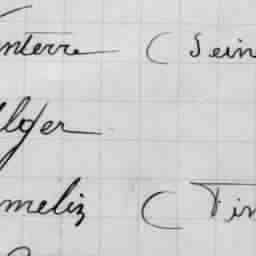 nterre (Sein
lger
meliz (Fin